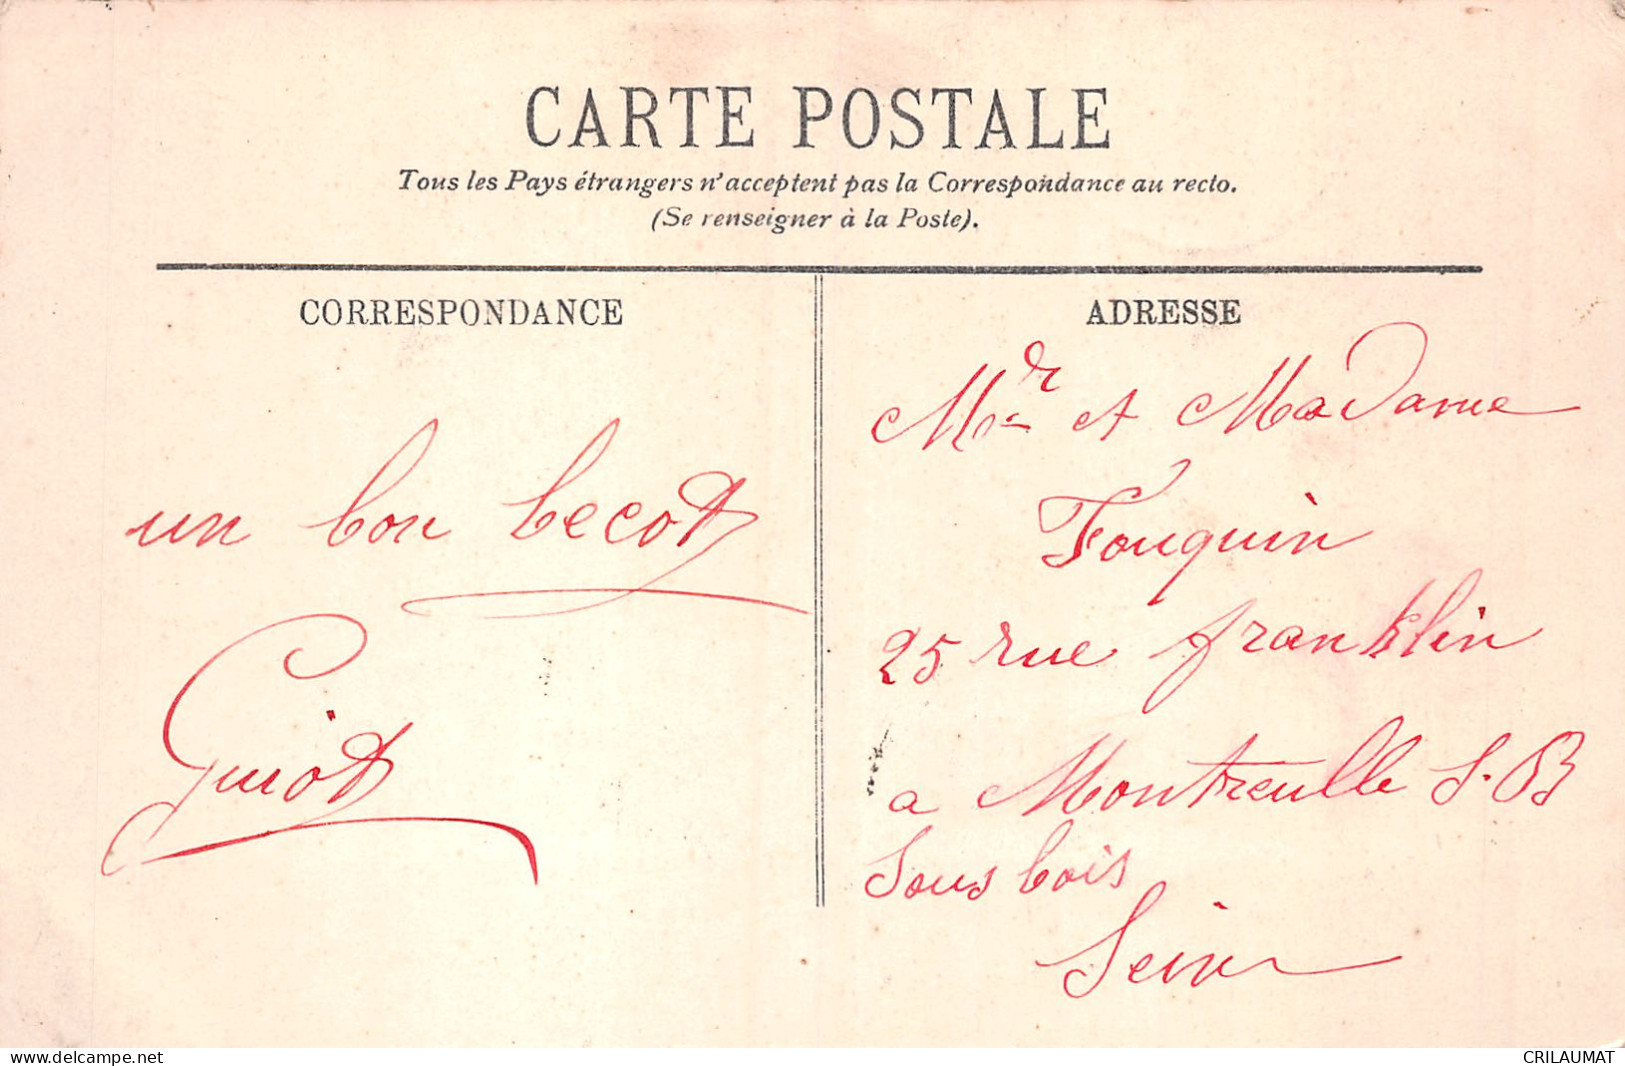 CARTE POSTALE
Tous les Pays étrangers n'acceptent pas la Correspondance au recto.
(Se renseigner à la Poste).
CORRESPONDANCE
un bon becot
Guiot
ADRESSE
Mr et Madame
Fouquin
25 rue franklin
a Montreulle S. B
Sous bois
Seine
delcampe.net
CRILAUMAT